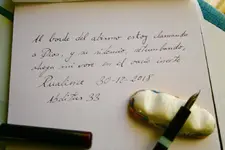 Al borde del abismo estoy clamando
a Dios, y su silencio, retumbando,
ahoga mi voz en el vacío inerte
30-12-2018
33